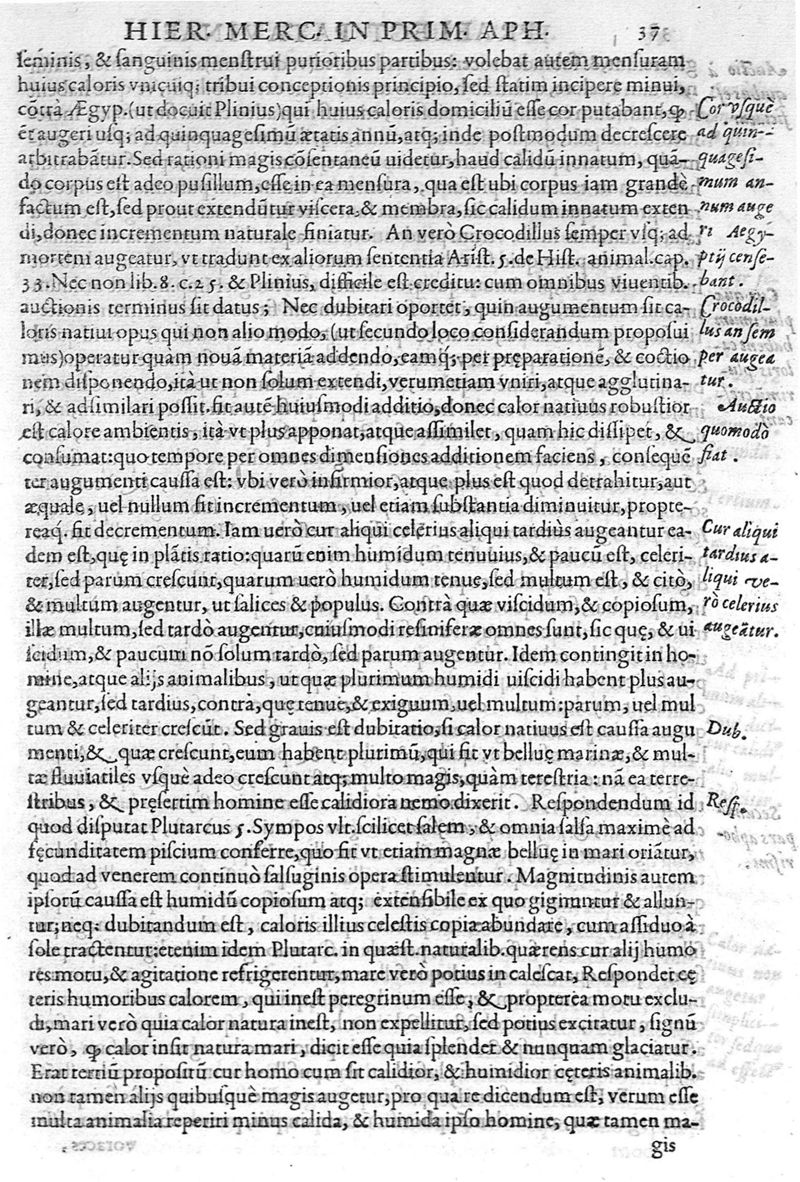 HIER. MERC. IN PRIM. APH. 37
ſeminis, & ſanguinis menſtrui purioribus partibus: volebat autem menſuram
huius caloris vnicuiq; tribui conceptionis principio, ſed ſtatim incipere minui,
cõtrà Ægyp. (ut docuit Plinius) qui huius caloris domiciliũ eſſe cor putabant, ꝙ
ẽt augeri uſq; ad quinquageſimũ ætatis annũ, atq; inde poſtmodum decreſcere
arbitrabãtur. Sed rationi magis cõſentaneũ uidetur, haud calidũ innatum, quã-
do corpus eſt adeo puſillum, eſſe in ea menſura, qua eſt ubi corpus iam grandè
factum eſt, ſed prout extendũtur viſcera, & membra, ſic calidum innatum exten
di, donec incrementum naturale finiatur. An verò Crocodillus ſemper vſq; ad
mortem augeatur, vt tradunt ex aliorum ſententia Ariſt. 5. de Hiſt. animal. cap.
33. Nec non lib. 8. c. 25. & Plinius, difficile eſt creditu: cum omnibus viuentib.
auctionis terminus ſit datus; Nec dubitari oportet, quin augumentum ſit ca-
loris natiui opus qui non alio modo, (ut ſecundo loco conſiderandum propoſui
mus) operatur quam nouã materiã addendo, eamq; per pręparationẽ, & coctio
nem diſponendo, ità ut non ſolum extendi, verumetiam vniri, atque agglutina-
ri, & adſimilari poſſit. fit autẽ huiuſmodi additio, donec calor natiuus robuſtior
eſt calore ambientis, ità vt plus apponat, atque aſſimilet, quam hic diſſipet, &
conſumat: quo tempore per omnes dimenſiones additionem faciens, conſequẽ
ter augumenti cauſſa eſt: vbi verò infirmior, atque plus eſt quod detrahitur, aut
æquale, uel nullum fit incrementum, uel etiam ſubſtantia diminuitur, propte-
reaq. fit decrementum. Iam uerò cur aliqui celerius aliqui tardiùs augeantur ea-
dem eſt, quę in plãtis ratio: quarũ enim humidum tenuuius, & paucũ eſt, celeri-
ter, ſed parum creſcunt, quarum uerò humidum tenue, ſed multum eſt, & citò,
& multum augentur, ut ſalices & populus. Contrà quæ viſcidum, & copioſum,
illæ multum, ſed tardò augentur, cuiuſmodi reſiniferæ omnes ſunt, ſic quę, & ui
ſcidum, & paucum nõ ſolum tardò, ſed parum augentur. Idem contingit in ho-
mine, atque alijs animalibus, ut quæ plurimum humidi uiſcidi habent plus au-
geantur, ſed tardius, contra, quę tenue, & exiguum, uel multum: parum, uel mul
tum & celeriter creſcũt. Sed grauis eſt dubitatio, ſi calor natiuus eſt cauſſa augu
menti, & quæ creſcunt, eum habent plurimũ, qui fit vt belluę marinæ, & mul-
tæ fluuiatiles vſque adeo creſcunt atq; multo magis, quàm tereſtria: nã ea terre-
ſtribus, & pręſertim homine eſſe calidiora nemo dixerit. Reſpondendum id
quod diſputat Plutarcus 5. Sympos vlt. ſcilicet ſalem, & omnia ſalſa maximè ad
fęcunditatem piſcium conferre, quo fit vt etiam magnæ belluę in mari oriãtur,
quod ad venerem continuò ſalſuginis opera ſtimulentur. Magnitudinis autem
ipſorũ cauſſa eſt humidũ copioſum atq; extenſibile ex quo gignuntur & alun-
tur; neq; dubitandum eſt, caloris illius celeſtis copia abundare, cum aſſiduo à
ſole tractentur: etenim idem Plutarc. in quæſt. naturalib. quærens cur alij humo
res motu, & agitatione refrigerentur, mare verò potius in caleſcat, Reſpondet cę
teris humoribus calorem, qui ineſt peregrinum eſſe, & propterea motu exclu-
di, mari verò quia calor natura ineſt, non expellitur, ſed potius excitatur, ſignũ
verò, ꝙ calor inſit natura mari, dicit eſſe quia ſplendet & nunquam glaciatur.
Erat tertiũ propoſitũ cur homo cum ſit calidior, & humidior cęteris animalib.
non tamen alijs quibuſquè magis augetur, pro qua re dicendum eſt, verum eſſe
multa animalia reperiri minus calida, & humida ipſo homine, quæ tamen ma-
gis
Cor vſque
ad quin-
quageſi-
mum an-
num auge
ri Aegy-
ptij cenſe-
bant.
Crocodil-
lus an ſem
per augea
tur.
Auctio
quomodò
fiat.
Cur aliqui
tardius a-
liqui ve-
rò celerius
augeãtur.
Dub.
Reſp.